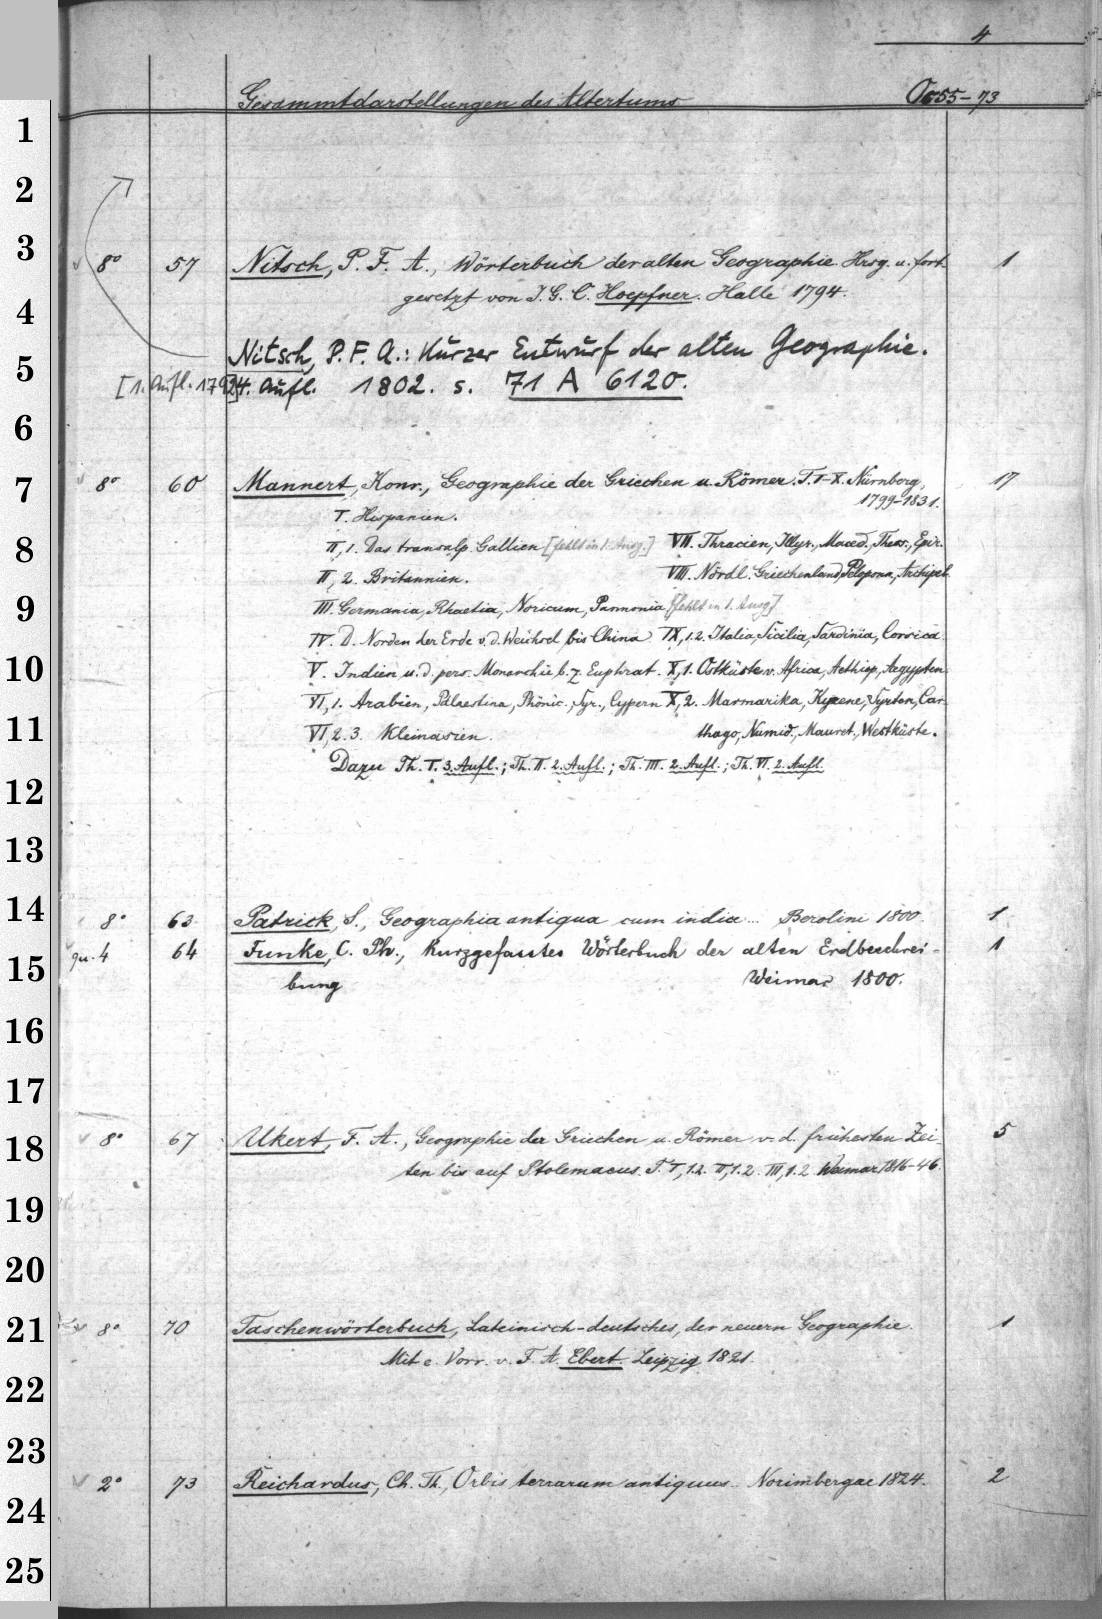 4
Gesammtdarstellungen des Altertums 55-73
1
2
3
8° 57 Nitsch, P. F. A., Wörterbuch der alten Geographie. Hrsg. u. fort 1
gesetzt von J. G. C. Hoepfner. Halle 1794.
4
Nitsch, P. F. A.: Kurzer Entwurf der alten Geographie.
5
[1. Aufl. 1792] 4. Aufl. 1802. s. 71 A 6120.
6
7
8° 60 Mannert, Konr., Geographie der Griechen u. Römer. T. I-X. Nürnberg, 17
1799-1831.
I. Hispanien.
8
II, 1. Das transalp. Gallien [fehlt in 1. Ausg.] VII. Thracien, Illyr., Maced., Thess., Epir.
II, 2. Britannien. VIII. Nördl. Griechenland, Pelopon., Archipel.
9
III. Germania, Rhaetia, Noricum, Pannonia [fehlt in 1. Ausg]
IV. D. Norden der Erde v. d. Weichsel bis China IX, 1.2. Italia, Sicilia, Sardinia, Corsica.
10
V. Indien u. d. pers. Monarchie b. z. Euphrat. X, 1. Ostküste v. Africa, Aethiop., Aegypten.
VI, 1. Arabien, Palaestina, Phönic., Syr., Cypern X, 2. Marmarika, Kyrene, Syrten, Car-
11
VI, 2. 3. Kleinasien. thago, Numid., Mauret., Westküste.
Dazu Th. I. 3. Aufl.; Th. II. 2. Aufl.; Th. III. 2. Aufl.; Th. VI. 2. Aufl.
12
13
14
8° 63 Patrick, S., Geographia antiqua cum india ... Berolini 1800. 1
15
qu. 4 64 Funke, C. Ph., Kurzgefasstes Wörterbuch der alten Erdbeschrei- 1
bung Weimar 1800.
16
17
18
8° 67 Ukert, F. A., Geographie der Griechen u. Römer v. d. frühesten Zei- 5
ten bis auf Ptolemaeus. T. I, 1.2. II, 1.2. III, 1.2 Weimar 1816-46.
19
20
21
8° 70 Taschenwörterbuch, Lateinisch-deutsches, der neuern Geographie. 1
Mit e. Vorr. v. F. A. Ebert. Leipzig 1821.
22
23
2° 73 Reichardus, Ch. Th., Orbis terrarum antiquus. Norimbergae 1824. 2
24
25